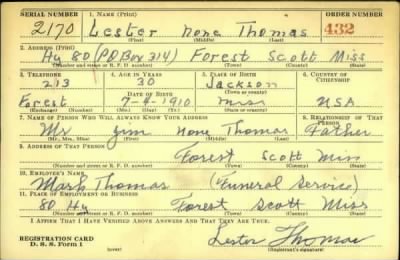 SERIAL NUMBER 1. NAME (Print) ORDER NUMBER
2170 Lester None Thomas 432
(First) (Middle) (Last)
2. ADDRESS (Print)
Hy 80 (PO Box 314) Forest Scott Miss
(Number and street or R. F. D. number) (Town) (County) (State)
3. TELEPHONE 4. AGE IN YEARS 5. PLACE OF BIRTH 6. COUNTRY OF CITIZENSHIP
213 30 Jackson
DATE OF BIRTH (Town or county)
Forest 7-4-1910 Miss USA
(Exchange) (Number) (Mo.) (Day) (Yr.) (State or country)
7. NAME OF PERSON WHO WILL ALWAYS KNOW YOUR ADDRESS 8. RELATIONSHIP OF THAT PERSON
Mr Jim None Thomas Father
(Mr., Mrs., Miss) (First) (Middle) (Last)
9. ADDRESS OF THAT PERSON
Forest Scott Miss
(Number and street or R. F. D. number) (Town) (County) (State)
10. EMPLOYER'S NAME
Thomas (Funeral Service)
11. PLACE OF EMPLOYMENT OR BUSINESS
80 Hy Forest Scott Miss
(Number and street or R. F. D. number) (Town) (County) (State)
I AFFIRM THAT I HAVE VERIFIED ABOVE ANSWERS AND THAT THEY ARE TRUE.
REGISTRATION CARD
D. S. S. Form 1 Lester Thomas
(over) (Registrant's signature)